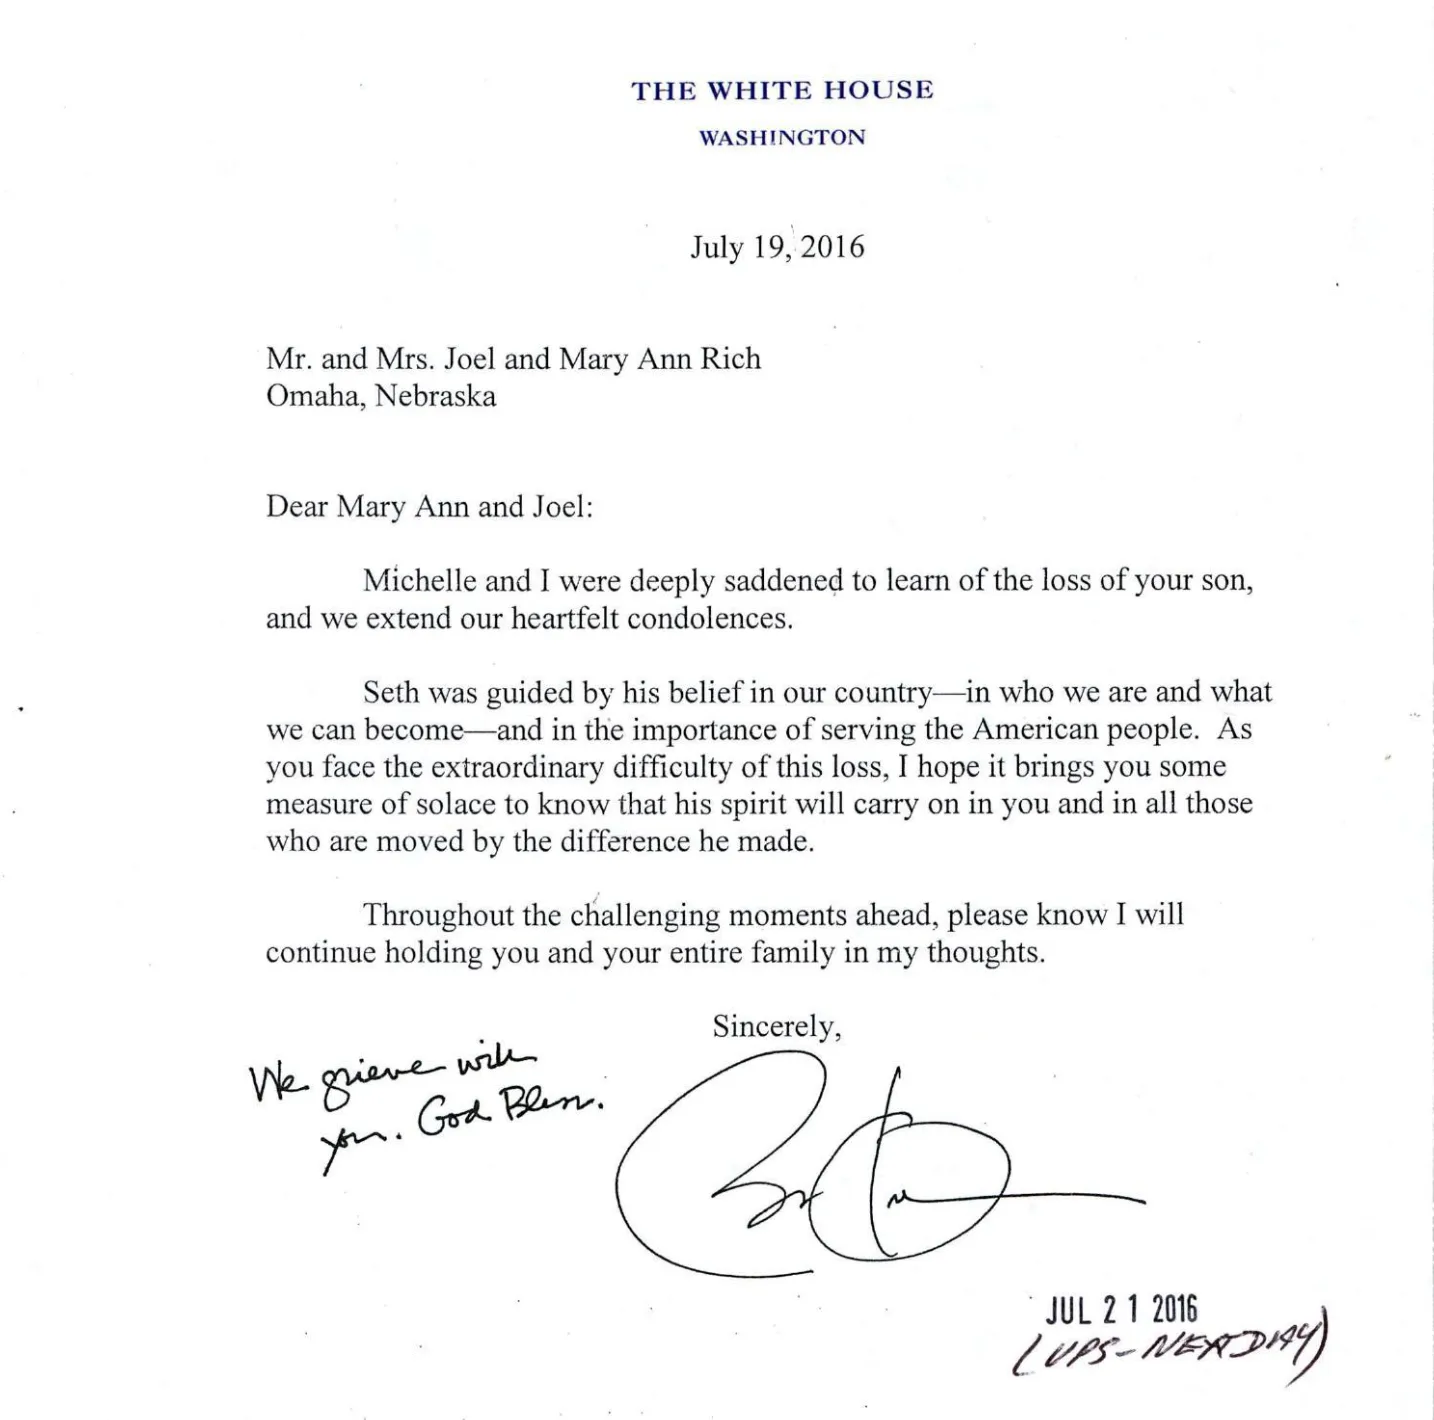 THE WHITE HOUSE
WASHINGTON
July 19, 2016
Mr. and Mrs. Joel and Mary Ann Rich
Omaha, Nebraska
Dear Mary Ann and Joel:
Michelle and I were deeply saddened to learn of the loss of your son,
and we extend our heartfelt condolences.
Seth was guided by his belief in our country—in who we are and what
we can become—and in the importance of serving the American people. As
you face the extraordinary difficulty of this loss, I hope it brings you some
measure of solace to know that his spirit will carry on in you and in all those
who are moved by the difference he made.
Throughout the challenging moments ahead, please know I will
continue holding you and your entire family in my thoughts.
Sincerely,
We grieve with
you. God Bless.
JUL 21 2016
(UPS-NEXTDAY)